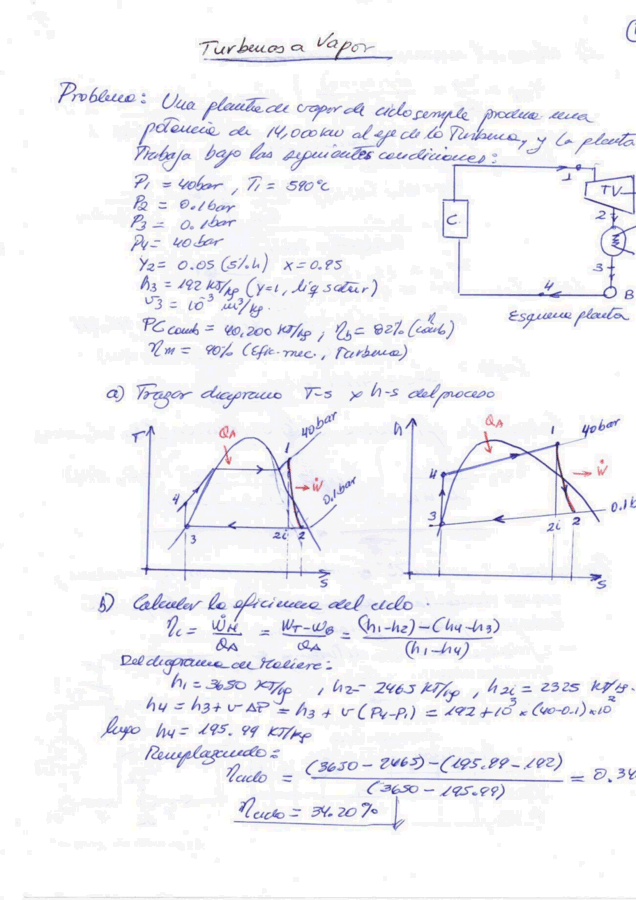 Turbinas a Vapor
Problema: Una planta de vapor de ciclo simple produce una
potencia de 14,000 kW al eje de la Turbina, y la planta
Trabaja bajo las siguientes condiciones:
P1 = 40bar, T1 = 590°C
P2 = 0.1bar
P3 = 0.1bar
P4 = 40bar
Y2 = 0.05 (5% h) x = 0.95
h3 = 192 KJ/kg (Y=1, liq satur)
v3 = 10⁻³ m³/kg.
PC comb = 40,200 KJ/kg, ηb = 82% (comb)
ηm = 90% (Efic. mec., Turbina)
1
TV
C
2
3
4
B
Esquema planta
a) Trazar diagrama T-s y h-s del proceso
T
QA
1
40bar
4
Ẇ
0.1bar
3
2i
2
s
h
QA
1
40bar
4
Ẇ
3
2i
2
s
b) Calcular la eficiencia del ciclo.
ηc = ẆN/QA = (WT-WB)/QA = ((h1-h2)-(h4-h3))/(h1-h4)
Del diagrama de Moliere:
h1 = 3650 KJ/kg, h2 = 2465 KJ/kg, h2i = 2325 KJ/kg.
h4 = h3 + v ΔP = h3 + v (P4-P1) = 192 + 10³ x (40-0.1) x10²
luego h4 = 195.99 KJ/kg
Remplazando:
ηciclo = ((3650-2465)-(195.99-192))/(3650-195.99) = 0.34
ηciclo = 34.20%